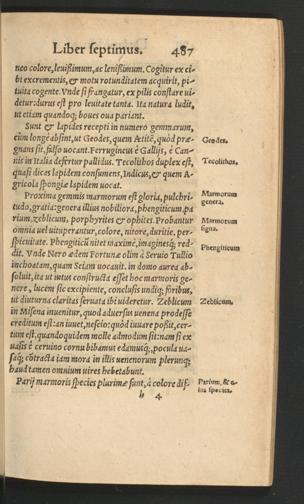 Liber septimus. 487
neo colore, leuissimum, ac lenissimum. Cogitur ex ci-
bi excrementis, & motu rotunditatem acquirit, pi-
tuita cogente. Vnde si frangatur, ex pilis constare ui-
detur: durus est pro leuitate tanta. Ita natura ludit,
ut etiam quandoq; boues oua pariant.
Sunt & lapides recepti in numero gemmarum,
cùm longè absint, ut Geodes, quem Aëtitē, quòd præ-
Geodes.
gnans sit, falso uocant. Ferrugineus è Gallijs, è Can-
nis in Italia defertur pallidus. Tecolithos duplex est,
Tecolithos.
quasi dicas lapidem consumens, Indicus, & quem A-
gricola spongiæ lapidem uocat.
Proxima gemmis marmorum est gloria, pulchri-
Marmorum
tudo, gratia: genera illius nobiliora, phengiticum, pa
genera.
rium, zeblicum, porphyrites & ophites. Probantur
omnia uel uituperantur, colore, nitore, duritie, per-
Marmorum
signa.
spicuitate. Phengiticū nitet maximè, imaginesq; red-
dit. Vnde Nero ædem Fortunæ olim à Seruio Tullio
Phengiticum
inchoatam, quam Sciam uocauit. in domo aurea ab-
soluit, ita ut intus constructa esset hoc marmoris ge-
nere, lucem sic excipiente, conclusis undiq; foribus,
ut diuturna claritas seruata ibi uideretur. Zeblicum
Zeblicum.
in Misena inuenitur, quod aduersus uenena prodesse
creditum est: an iuuet, nescio: quòd iuuare possit, cer-
tum est, quandoquidem molle admodum sit: nam si ex
uasis è ceruino cornu bibamus edamusq;, pocula ua-
saq; cōtracta iam mora in illis uenenorum plerunq;
haud tamen omnium uires hebetabunt.
Parij marmoris species plurimæ sunt, à colore dis-
Parium, &
h 4